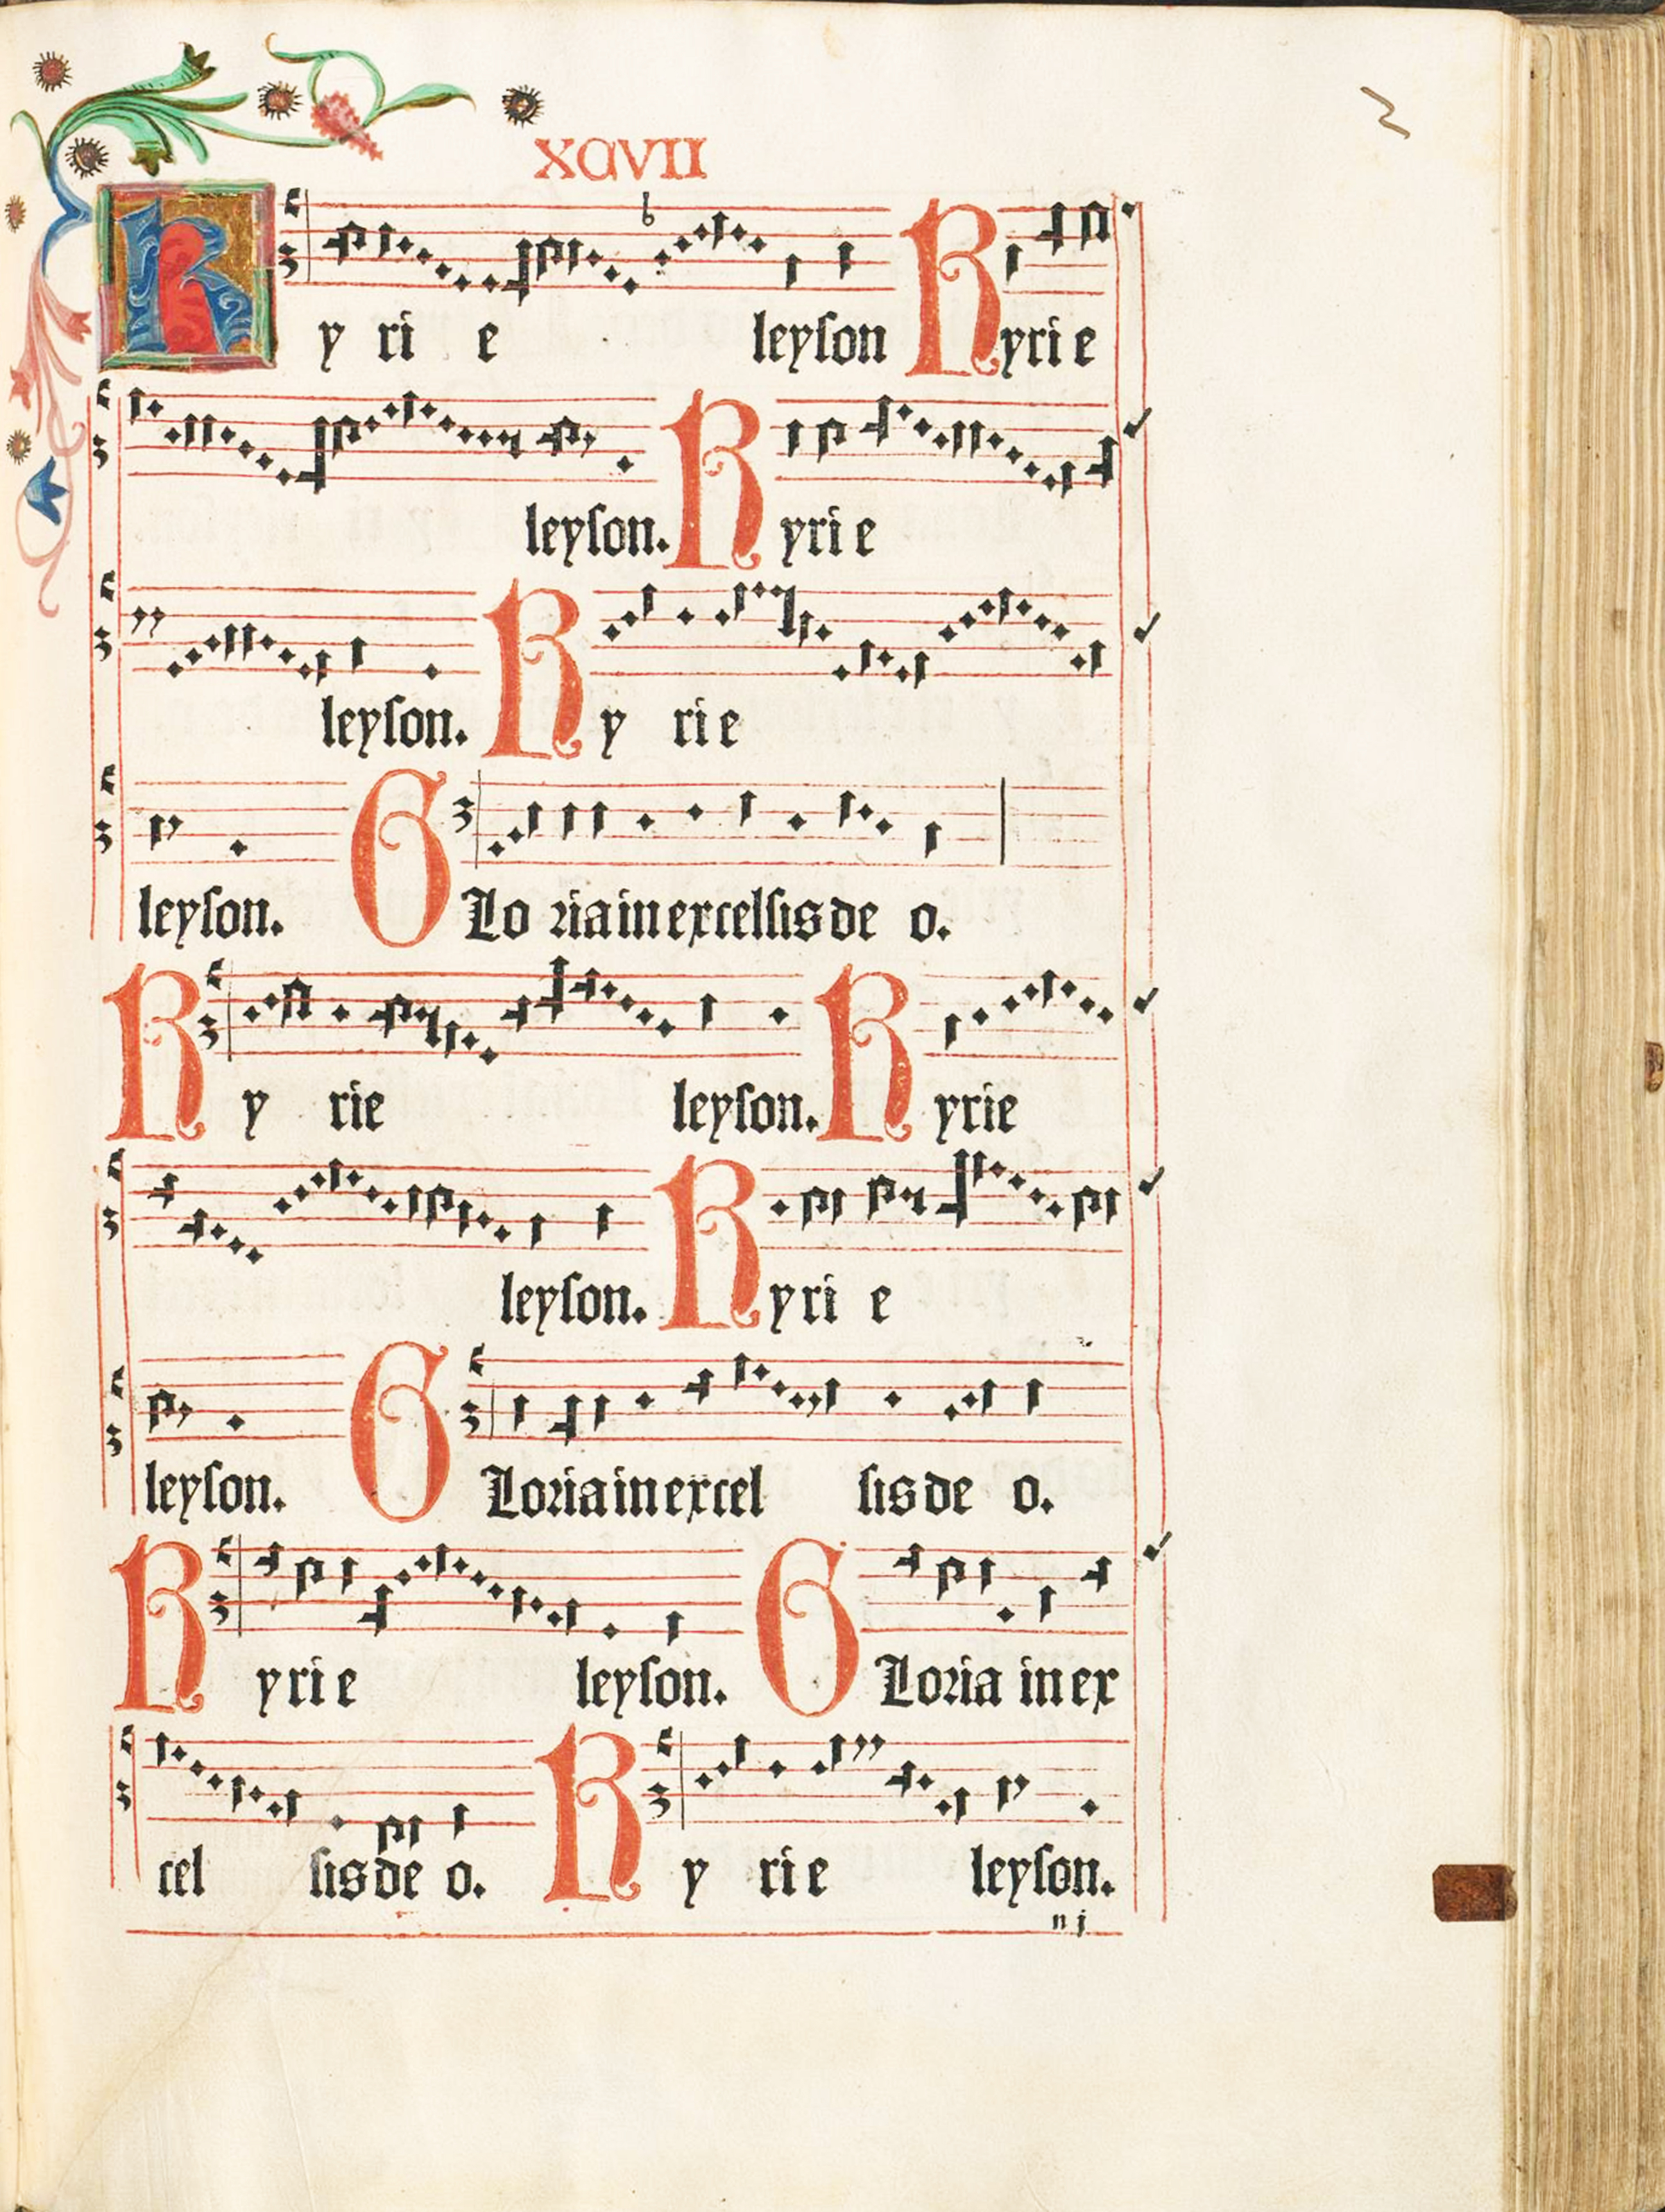 XCVII
Ky ri e leyſon Kyrie
leyſon. Kyrie
leyſon. Ky rie
leyſon. GLo ria in excelſis de o.
Ky rie leyſon. Kyrie
leyſon. Kyri e
leyſon. GLoria in excel ſis de o.
Kyrie leyſon. GLoria in ex
cel ſis de o. Ky rie leyſon.
n j